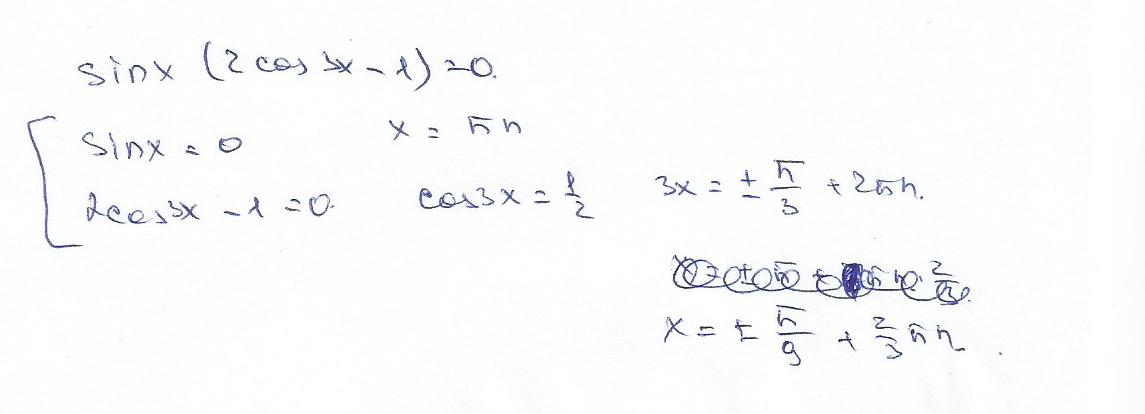 sinx (2cos3x-1)=0.
sinx = 0 x = πn
2cos3x -1 =0. cos3x = 1/2 3x = ± π/3 + 2πn.
x = ± π/9 + 2/3 πn.